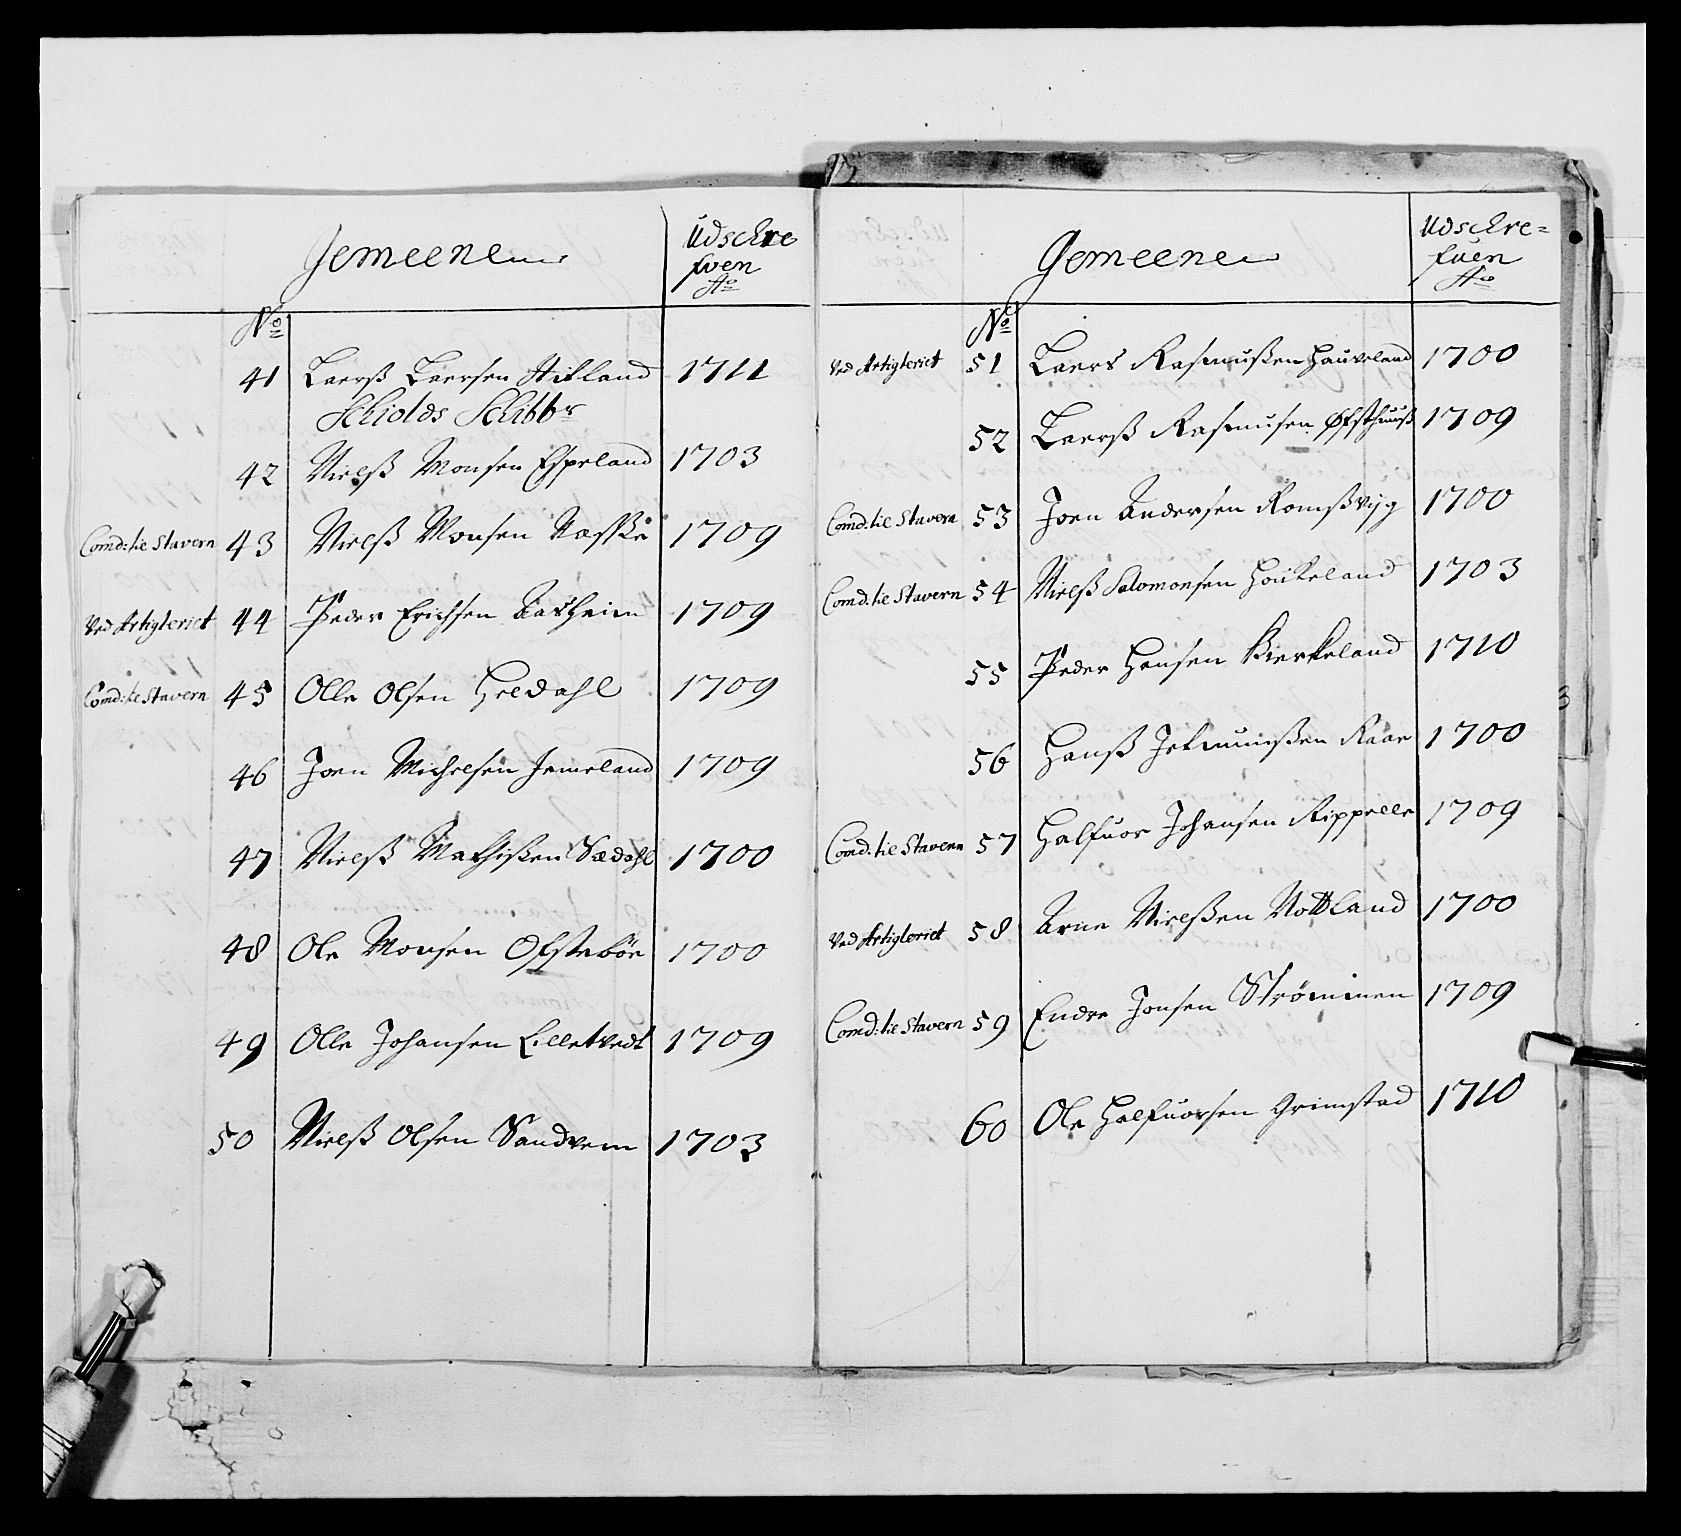 Gemeene
Udschre
fven
Ao
No
41 Laerß Laersen Hilland 1711
Schiolds Schibbr
42 Nielß Monsen Espeland 1703
Comd: tie Stavern 43 Nielß Monsen 1709
Ved Artigleriet 44 Peder Erichsen 1709
Comd: tie Stavern 45 Olle Olsen Heldahl 1709
46 Joen Michelsen Jemeland 1709
47 Nielß Mathißen Sædahl 1700
48 Ole Monsen Ofstebøe 1700
49 Olle Johansen Lilletvedt 1709
50 Nielß Olsen Sandvem 1703
Gemeene
Udschre=
fuen
Ao
No
Ved Artigleriet 51 Laers Rasmußen Hauveland 1700
52 Laerß Rasmusen Øfsthuuß 1709
Comd: tie Stavern 53 Joen Andersen Romßvijg 1700
Comd: tie Stavern 54 Nielß Salomonsen Houkeland 1703
55 Peder Hansen Birkeland 1710
56 Hanß Raae 1700
Comd: tie Stavern 57 Halfuor Johansen Rippelle 1709
Ved Artigleriet 58 Arne Nielßen Nottland 1700
Comd: tie Stavern 59 Endre Jonsen Strømmen 1709
60 Ole Halfuorsen Grimstad 1710